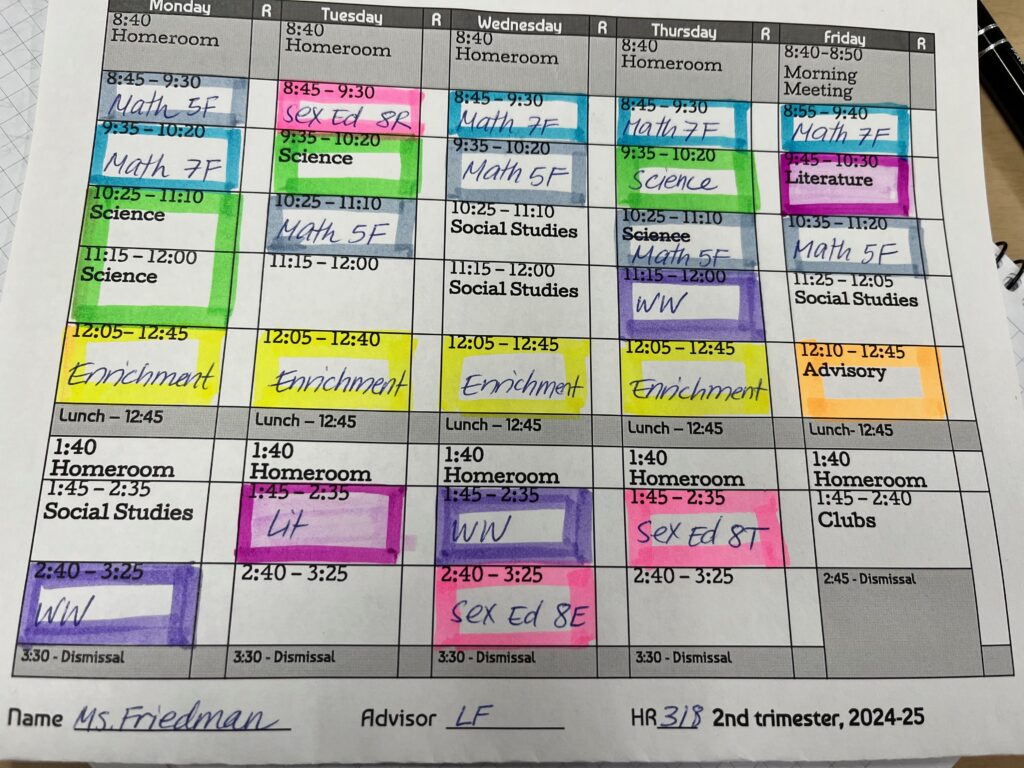 Monday R Tuesday R Wednesday R Thursday R Friday R
8:40 8:40 8:40 8:40 8:40-8:50
Homeroom Homeroom Homeroom Homeroom Morning
Meeting
8:45 – 9:30 8:45 – 9:30 8:45 – 9:30 8:45 – 9:30 8:55 – 9:40
Math 5F Sex Ed 8R Math 7F Math 7F Math 7F
9:35 – 10:20 9:35 – 10:20 9:35 – 10:20 9:35 – 10:20 9:45 – 10:30
Math 7F Science Math 5F Science Literature
10:25 – 11:10 10:25 – 11:10 10:25 – 11:10 10:25 – 11:10 10:35 – 11:20
Science Math 5F Social Studies Science Math 5F
Math 5F
11:15 – 12:00 11:15 – 12:00 11:15 – 12:00 11:15 – 12:00 11:25 – 12:05
Science Social Studies WW Social Studies
12:05– 12:45 12:05 – 12:40 12:05 – 12:45 12:05 – 12:45 12:10 – 12:45
Enrichment Enrichment Enrichment Enrichment Advisory
Lunch – 12:45 Lunch – 12:45 Lunch – 12:45 Lunch – 12:45 Lunch- 12:45
1:40 1:40 1:40 1:40 1:40
Homeroom Homeroom Homeroom Homeroom Homeroom
1:45 – 2:35 1:45 – 2:35 1:45 – 2:35 1:45 – 2:35 1:45 – 2:40
Social Studies Lit WW Sex Ed 8T Clubs
2:40 – 3:25 2:40 – 3:25 2:40 – 3:25 2:40 – 3:25 2:45 - Dismissal
WW Sex Ed 8E
3:30 - Dismissal 3:30 - Dismissal 3:30 - Dismissal 3:30 - Dismissal
Name Ms. Friedman Advisor LF HR 318 2nd trimester, 2024-25